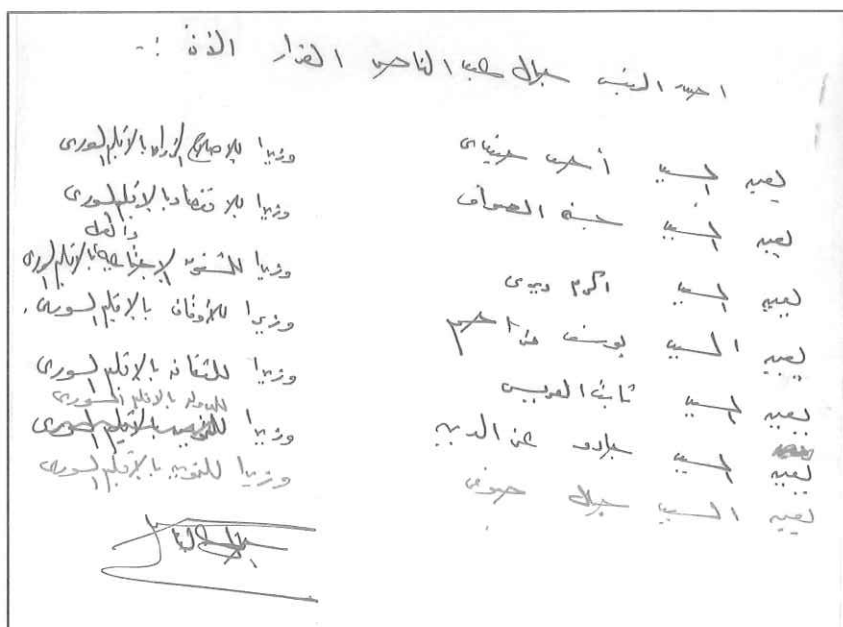 اصدر الرئيس جمال عبد الناصر القرار الآتى :-
تعيين السيد أحمد حنيدى وزيرا للإصلاح الزراعى بالإقليم السورى
تعيين السيد حسنى الصواف وزيرا للاقتصاد بالإقليم السورى
تعيين السيد اكرم ديرى وزيرا للشئون الإجتماعية والعمل بالإقليم السورى
تعيين السيد يوسف مزاحم وزيرا للأوقاف بالإقليم السورى.
تعيين السيد ثابت العريس وزيرا للثقافة بالإقليم السورى
تعيين السيد جادو عز الدين وزيرا للدولة بالإقليم السورى
تعيين السيد جمال صوفى وزيرا للتموين بالإقليم السورى